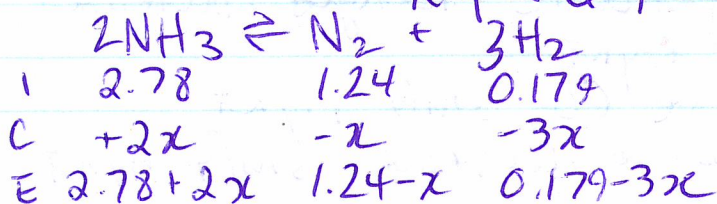 2NH3 ⇌ N2 + 3H2
I 2.78 1.24 0.179
C +2x -x -3x
E 2.78+2x 1.24-x 0.179-3x